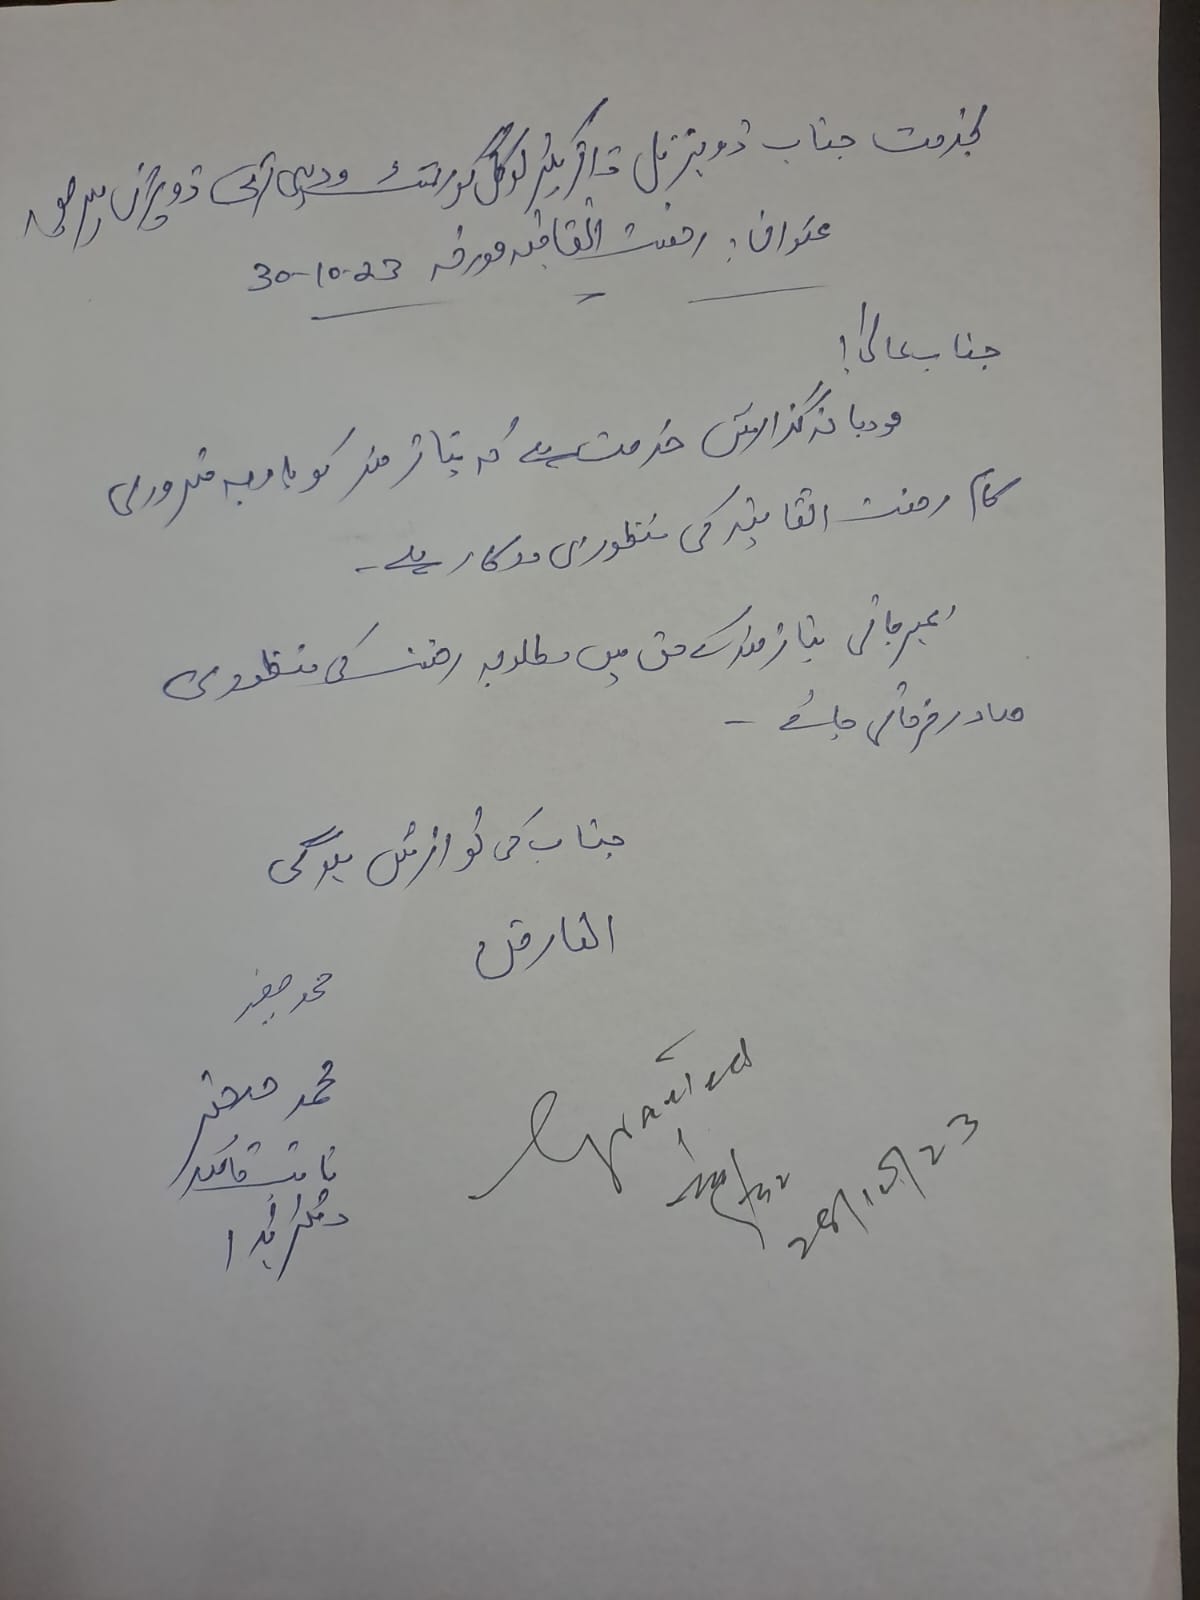 بخدمت جناب ڈویژنل ڈائریکٹر لوکل گورنمنٹ ودیہی ترقی ڈویژن میرپور
عنوان: رخصت اتفاقیہ مورخہ 30-10-23
جناب عالی!
مودبانہ گذارش خدمت ہے کہ نیاز مند کو بوجہ ضروری
کام رخصت اتفاقیہ کی منظوری درکار ہے۔
مہربانی نیاز مند کے حق میں مطلوبہ رخصت کی منظوری
صادر فرمائی جائے۔
جناب کی نوازش ہوگی
العارض
محمد
محمد
نائب قاصد
دفتر ہذا
Granted
28/10/23